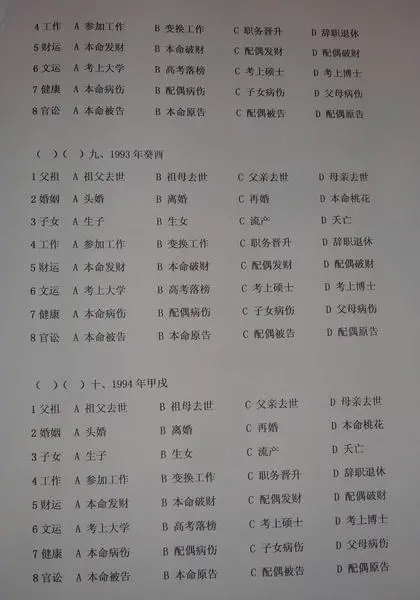 4 工作 A 参加工作 B 变换工作 C 职务晋升 D 辞职退休
5 财运 A 本命发财 B 本命破财 C 配偶发财 D 配偶破财
6 文运 A 考上大学 B 高考落榜 C 考上硕士 D 考上博士
7 健康 A 本命病伤 B 配偶病伤 C 子女病伤 D 父母病伤
8 官讼 A 本命被告 B 本命原告 C 配偶被告 D 配偶原告
( )( ) 九、1993 年癸酉
1 父祖 A 祖父去世 B 祖母去世 C 父亲去世 D 母亲去世
2 婚姻 A 头婚 B 离婚 C 再婚 D 本命桃花
3 子女 A 生子 B 生女 C 流产 D 夭亡
4 工作 A 参加工作 B 变换工作 C 职务晋升 D 辞职退休
5 财运 A 本命发财 B 本命破财 C 配偶发财 D 配偶破财
6 文运 A 考上大学 B 高考落榜 C 考上硕士 D 考上博士
7 健康 A 本命病伤 B 配偶病伤 C 子女病伤 D 父母病伤
8 官讼 A 本命被告 B 本命原告 C 配偶被告 D 配偶原告
( )( ) 十、1994 年甲戌
1 父祖 A 祖父去世 B 祖母去世 C 父亲去世 D 母亲去世
2 婚姻 A 头婚 B 离婚 C 再婚 D 本命桃花
3 子女 A 生子 B 生女 C 流产 D 夭亡
4 工作 A 参加工作 B 变换工作 C 职务晋升 D 辞职退休
5 财运 A 本命发财 B 本命破财 C 配偶发财 D 配偶破财
6 文运 A 考上大学 B 高考落榜 C 考上硕士 D 考上博士
7 健康 A 本命病伤 B 配偶病伤 C 子女病伤 D 父母病伤
8 官讼 A 本命被告 B 本命原告 C 配偶被告 D 配偶原告